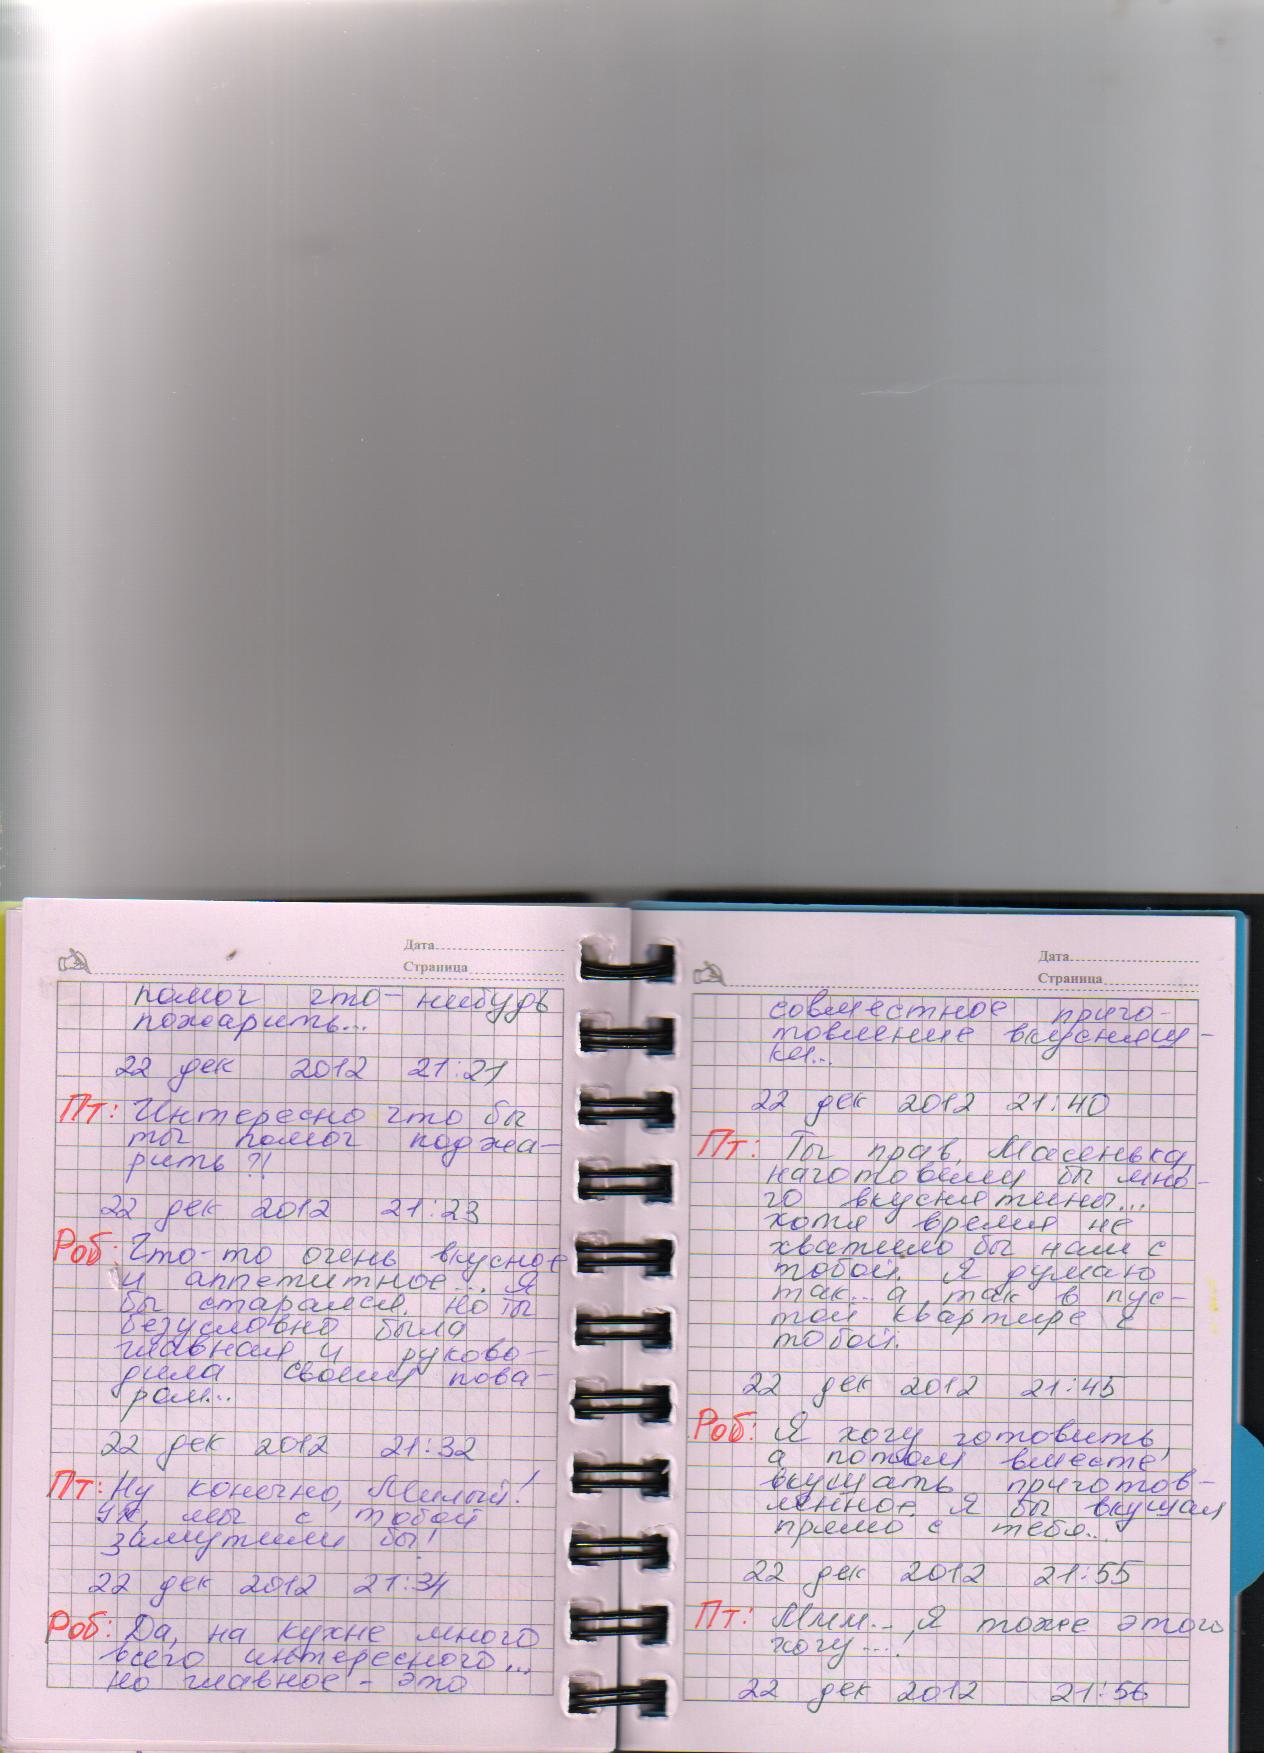 Дата
Страница
помог что-нибудь
пожарить...
22 дек 2012 21:21
Пт: Интересно что бы
ты помог поджа-
рить?!
22 дек 2012 21:23
Роб: Что-то очень вкусное
и аппетитное... Я
бы старался. Но ты
безусловно была
главная и руково-
дила своим пова-
ром...
22 дек 2012 21:32
Пт: Ну конечно, Милый!
Ух, мы с тобой
замутили бы!
22 дек 2012 21:34
Роб: Да, на кухне много
всего интересного...
но главное - это
Дата
Страница
совместное приго-
товление вкусняш-
ки...
22 дек 2012 21:40
Пт: Ты прав, Масенька,
наготовили бы мно-
го вкуснятины...
хотя время не
хватило бы нам с
тобой. Я думаю
так... а так в пус-
той квартире с
тобой.
22 дек 2012 21:45
Роб: Я хочу готовить,
а потом вместе
вкушать приготов-
ленное. Я бы вкушал
прямо с тебя..
22 дек 2012 21:55
Пт: Ммм.. Я тоже этого
хочу...!
22 дек 2012 21:56